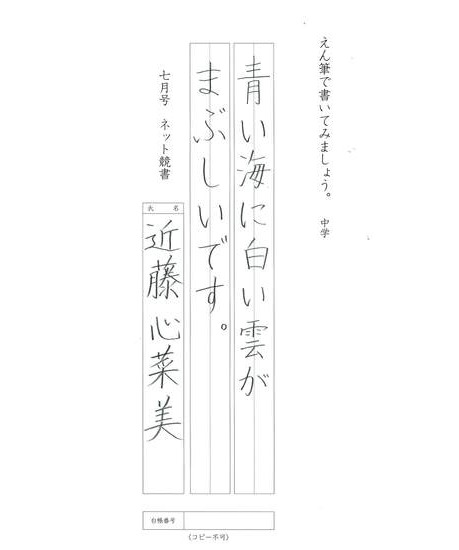 えん筆で書いてみましょう。 中学
青い海に白い雲が
まぶしいです。
七月号 ネット競書
氏 名
近藤心菜美
台帳番号
(コピー不可)